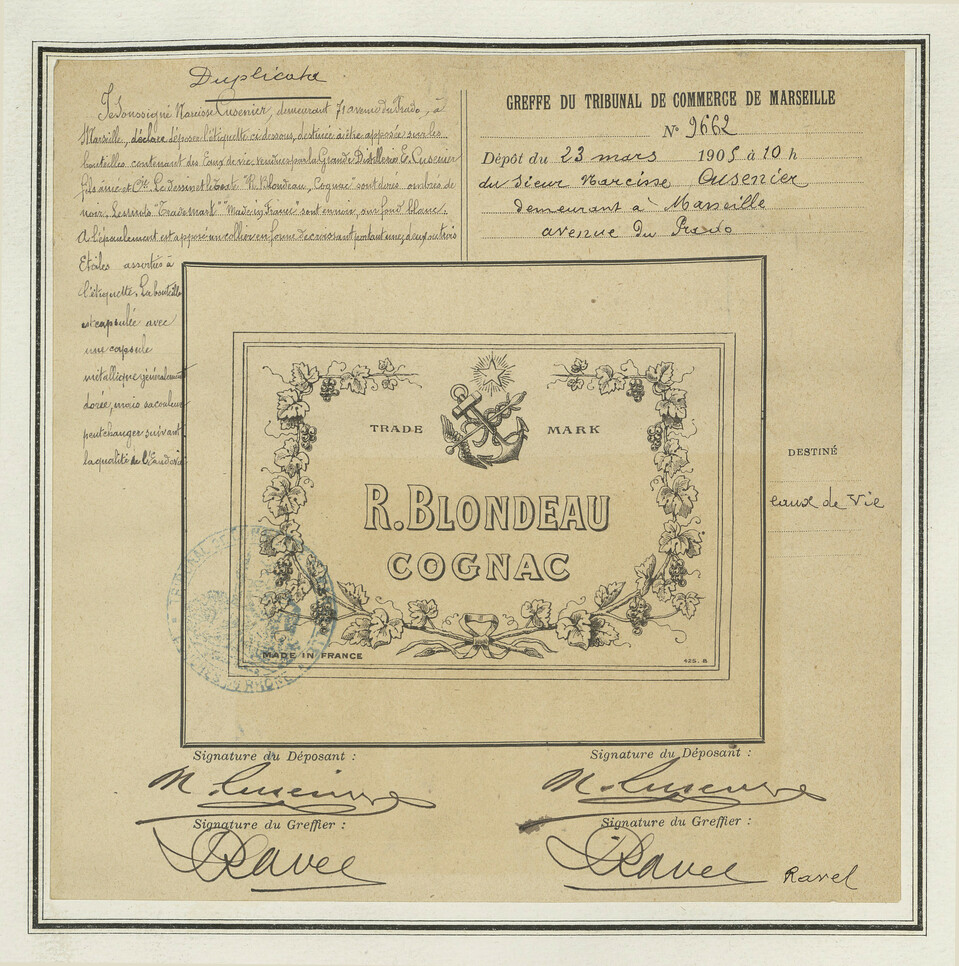 Duplicata
Je Soussigné Narcisse Cusenier, demeurant 71 avenue du Prado, à
Marseille, déclare déposer l'étiquette ci-dessous, destinée à être apposée sur les
bouteilles contenant des Eaux de vie vendues par la Grande Distillerie E. Cusenier
fils aîné et Cie. Le dessin et le texte "R. Blondeau, Cognac" sont dorés ombrés de
noir. Les mots "Trade Mark" "Made in France" sont en noir, sur fond blanc.
A l'épaulement est apposé un collier en forme de croissant portant une, deux ou trois
Etoiles assorties à
l'étiquette. La bouteille
est capsulée avec
une capsule
métallique généralement
dorée, mais sa couleur
peut changer suivant
la qualité de l'Eau de vie
GREFFE DU TRIBUNAL DE COMMERCE DE MARSEILLE
N° 9662
Dépôt du 23 mars 1905 à 10 h
du sieur Narcisse Cusenier
demeurant à Marseille
avenue du Prado
TRADE MARK
R. BLONDEAU
COGNAC
MADE IN FRANCE
425. B
DESTINÉ
eaux de Vie
TRIBUNAL DE
RHÔNE
Signature du Déposant :
N. Cusenier
Signature du Greffier :
Ravel
Signature du Déposant :
N. Cusenier
Signature du Greffier :
Ravel
Ravel